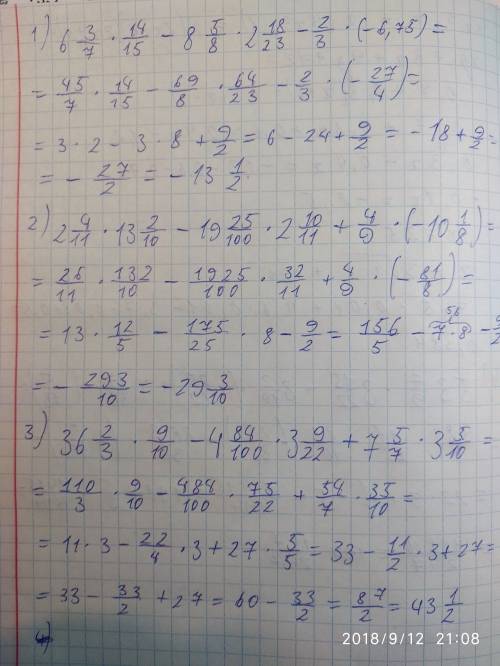 1) 6 3/7 · 14/15 − 8 5/8 · 2 18/23 − 2/3 · (−6,75) =
= 45/7 · 14/15 − 69/8 · 64/23 − 2/3 · (−27/4) =
= 3 · 2 − 3 · 8 + 9/2 = 6 − 24 + 9/2 = −18 + 9/2 =
= − 27/2 = −13 1/2
2) 2 4/11 · 13 2/10 − 19 25/100 · 2 10/11 + 4/9 · (−10 1/8) =
= 26/11 · 132/10 − 1925/100 · 32/11 + 4/9 · (−81/8) =
= 13 · 12/5 − 175/25 · 8 − 9/2 = 156/5 − 7·8 56 − 9/2
= − 293/10 = −29 3/10
3) 36 2/3 · 9/10 − 4 84/100 · 3 9/22 + 7 5/7 · 3 5/10 =
= 110/3 · 9/10 − 484/100 · 75/22 + 54/7 · 35/10 =
= 11 · 3 − 22/4 · 3 + 27 · 5/5 = 33 − 11/2 · 3 + 27 =
= 33 − 33/2 + 27 = 60 − 33/2 = 87/2 = 43 1/2
2018/9/12 21:08